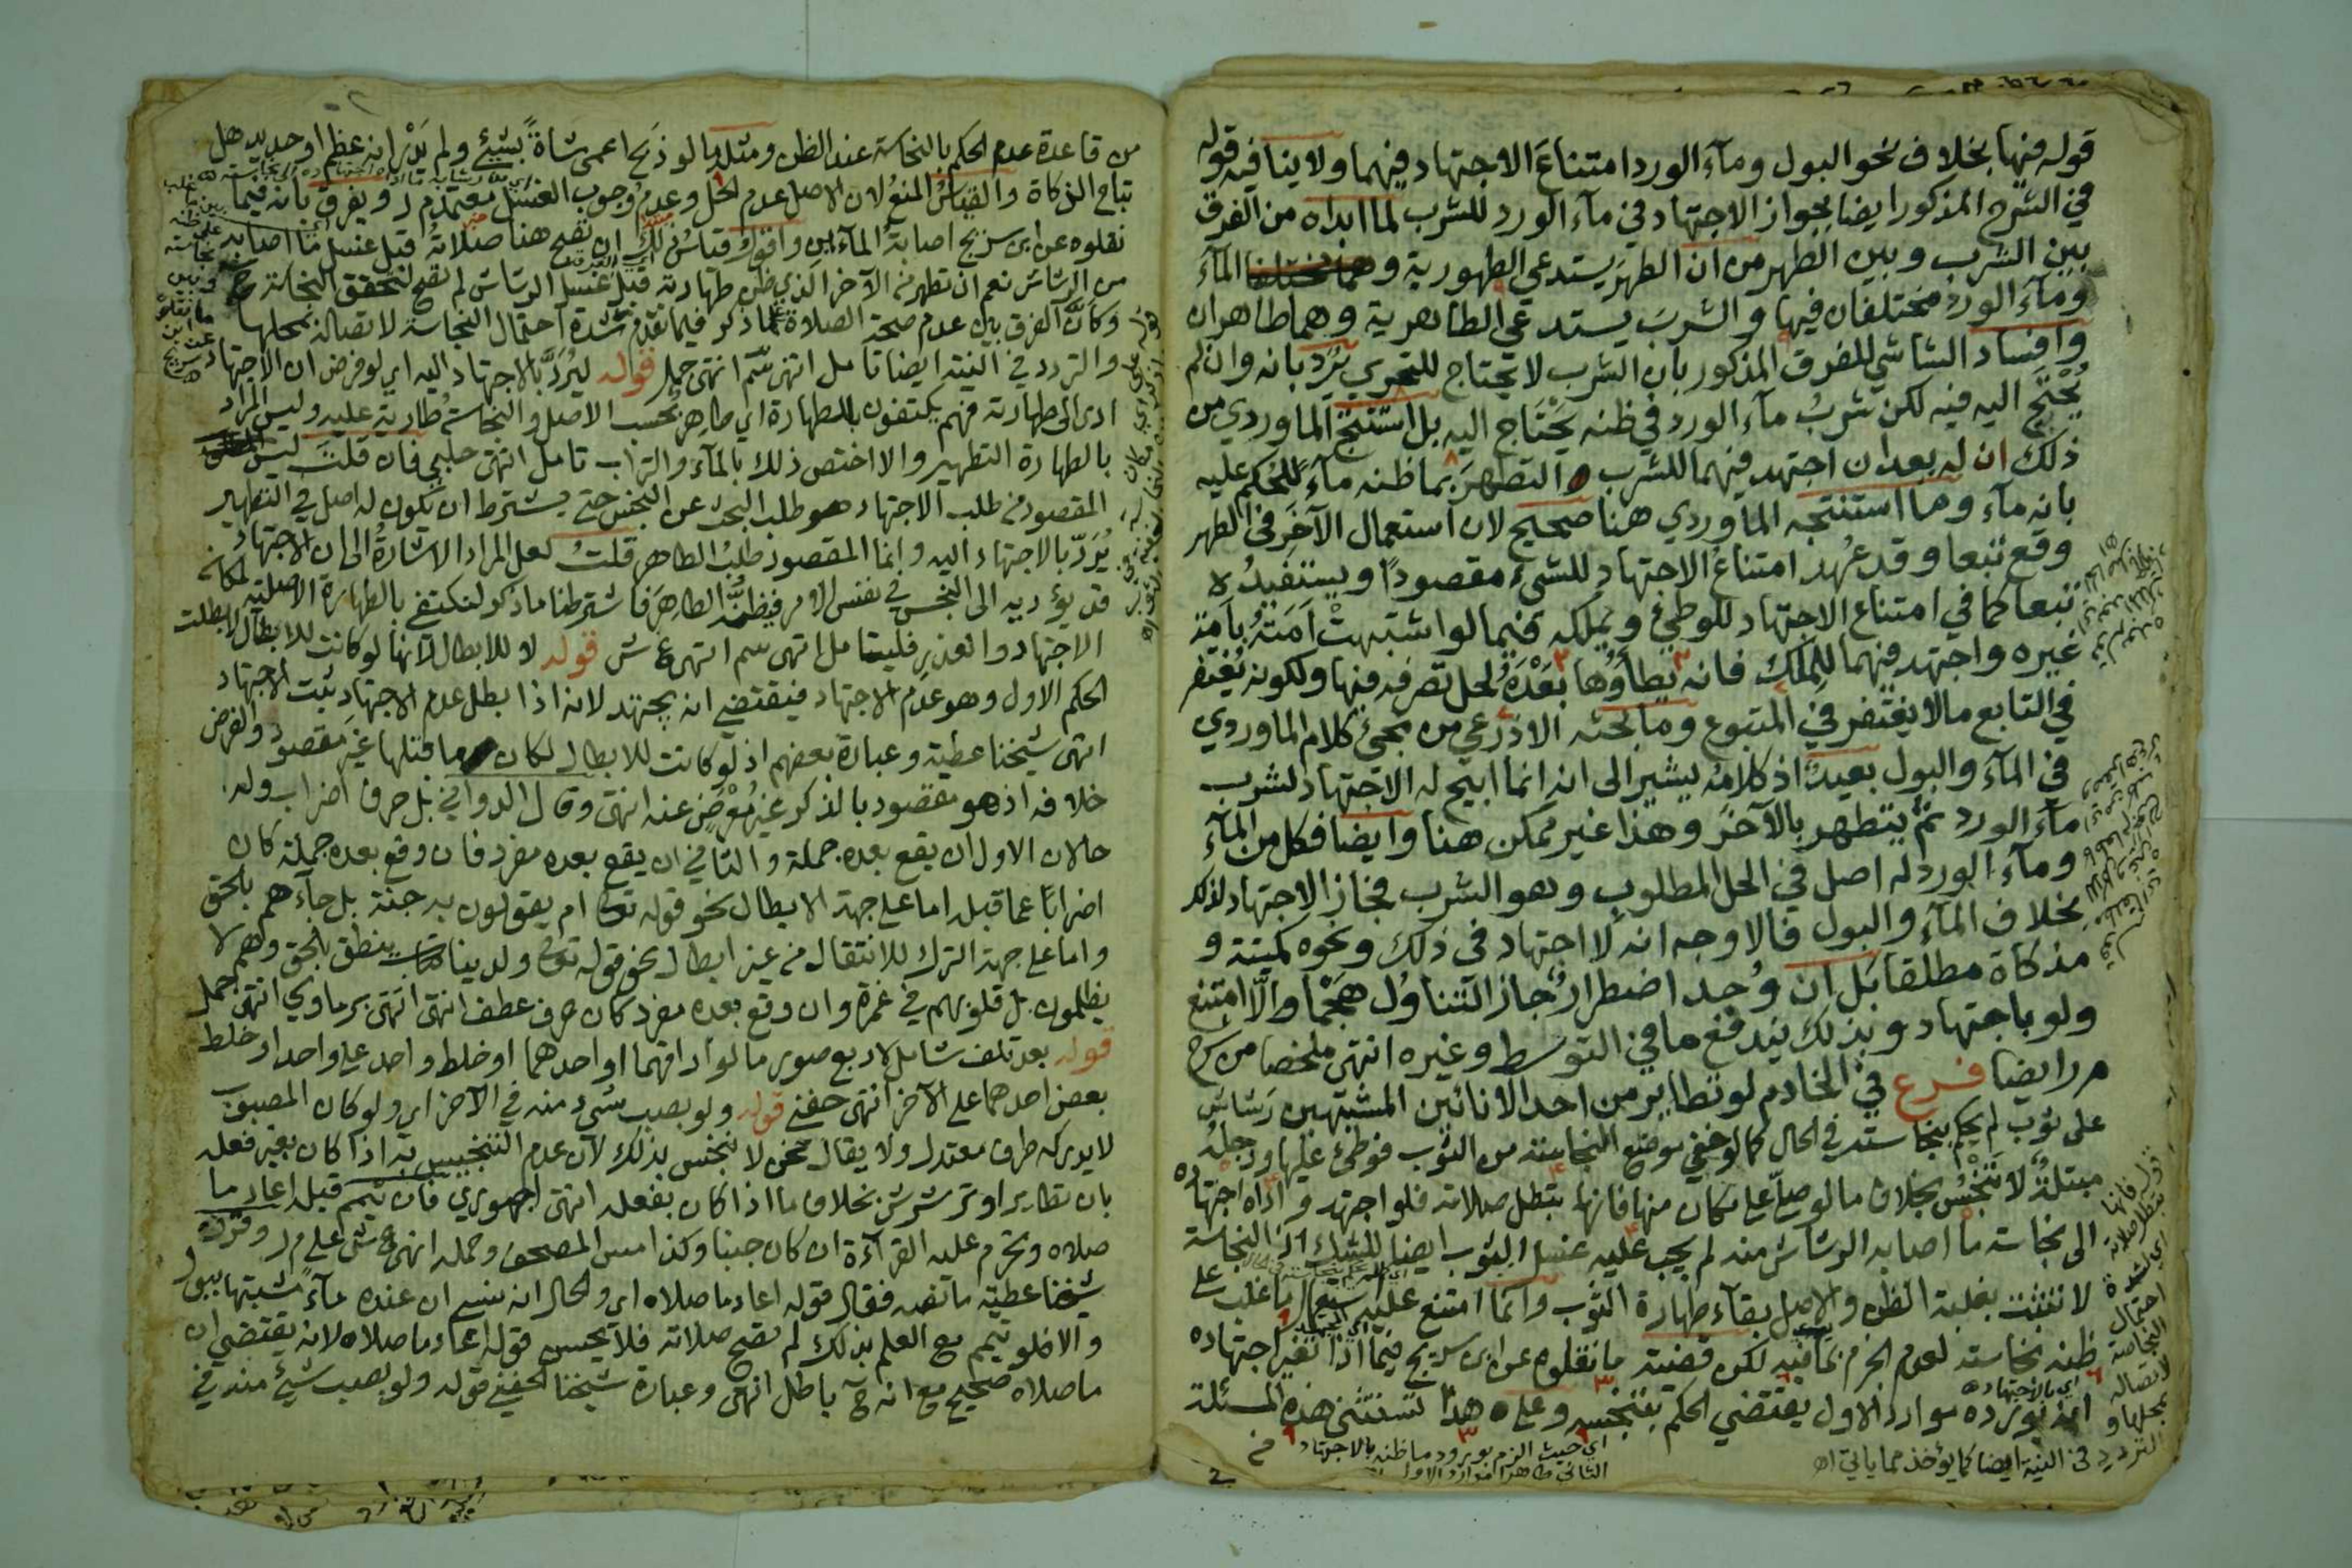 قوله فيها بخلاف نحو البول وماء الورد امتناعَ الاجتهاد فيهما ولا ينافيه قوله
في الشرح المذكور ايضا بجواز الاجتهاد في ماء الورد للشرب لما ابداه من الفرق
بين الشرب وبين الطهر من ان الطهرَ يستدعي الطهورية وهما مختلفا الماء
وماء الورد مختلفان فيها والشربَ يستدعي الطاهرية وهما طاهران
وافساد الشاشي للفرق المذكور بان الشرب لا يحتاج للتحري يُرَد بانه وان لم
يُحْتَج اليه فيه لكن شربُ ماء الورد في ظنه يَحْتَاج اليه بل استنتج الماوردي من
ذلك ان له بعد ان اجتهد فيهما للشرب التطهرَ بما ظنه ماءً للحُكم عليه
بانه ماء وما استنتجه الماوردي هنا صحيح لان استعمال الآخَر في الطهر
وقع تبعا وقد عُهد امتناعُ الاجتهاد للشيء مقصودًا ويستفيدُه
تبعا كما في امتناع الاجتهاد للوطئ ويملكه فيما لو اشتبهتْ اَمَتهُ بأمة
غيره واجتهد فيهما للمِلك فانه يطأوُها بَعْدَهُ لحل تصرفه فيها ولكونه يُغتفر
في التابع ما لا يغتفر في المتبوع وما بحثه الاذرعي من مجئ كلام الماوردي
في الماء والبول بعيدٌ اذ كلامُه يشير الى انه انما ابيح له الاجتهاد لشرب
ماء الورد ثم يتطهر بالآخر وهذا غير ممكن هنا وايضا فكل من الماء
وماء الورد له اصل في الحل المطلوب وهو الشرب فجاز الاجتهاد لذلك
بخلاف الماء والبول فالاوجه انه لا اجتهاد في ذلك ونحوه كميتة و
مذكاة مطلقا بل ان وُجد اضطرارٌ جاز التناوُل هَجْما والَّا امتنع
ولو باجتهاد وبذلك يندفع ما في التوسط وغيره انتهى ملخصا من شرح
م ر ايضا فرع في الخادم لو تطاير من احد الانائين المشتبهين رَشاش
على ثوب لم يحكم بنجاسته في الحال كما لو خفي موضع النجاسة من الثوب فوطئ عليها ورجلُه
مبتلةٌ لا تَنْجُس بخلاف ما لو صلّى على مكان منها فانها تبطل صلاته فلو اجتهد واداه اجتهاده
الى نجاسة ما اصابه الرشاش منه لم يجب عليه غسل الثوب ايضا للشك اذ النجاسة
لا تثبت بغلبة الظن والاصل بقاء طهارة الثوب وانما امتنع عليه استعمال ما غلب على
ظنه نجاسته لعدم الجزم بما فيه لكن قضية ما نقلوه عن ابن سريج فيما اذا تغير اجتهاده
انه يورده موارد الاول يقتضي الحكم بتنجيسه وعلى هذا تستثنى هذه المسئلة
اي حيث الزم بورود ما ظنه بالاجتهاد
الثاني طاهرا موارد الاول
قوله فانها
تبطل صلاته
احتمال
النجاسة
لاتصاله
بمحلها و
التردد في النية ايضا كما يؤخذ مما ياتي اه
من قاعدة عدم الحكم بالنجاسة عند الظن ومثله ما لو ذبح اعمى شاةً بشيئ ولم يَدْر انه عظم او حديد هل
تباح الذكاة والقياسُ المنعُ لان الاصل عدم الحل وعدمُ وجوب الغسل معتمد م ر ويفرق بانه فيما
نقلوه عن ابن سريج اصابةُ الماءين واقول قياسُ ذلك ان تصح هنا صلاتهُ قبل غسل ما اصابه
من الرشاش نعم ان تطهر من الآخر الذي ظن طهارته قبل غسل الرشاش لم تصح لتحقق النجاسة ح
وكَانَّ الفرق بين عدم صحة الصلاة كما ذكر فيما تقدم شدة احتمال النجاسة لاتصاله بمحلها
والتردد في النية ايضا تامل انتهى سم انتهى جمل قوله ليُرَدَّ بالاجتهاد اليه اي لو فرض ان الاجتهاد
ادى الى طهارته فهم يكتفون بالطهارة اي طاهر بحسب الاصل والنجاسةُ طارية عليه وليس المراد
بالطهارة التطهير والا اختص ذلك بالماء والتراب تامل انتهى حلبي فان قلتَ ليس
المقصود من طلب الاجتهاد هو طلب البحث عن النجس حتى يشترط ان يكون له اصل في التطهير
يُرَدّ بالاجتهاد اليه وانما المقصود طلبُ الطاهر قلتُ لعل المراد الاشارةُ الى ان الاجتهاد
قد يؤديه الى النجس في نفس الامر فيظنُّه الطاهرَ فاشترطنا ما ذكر لنكتفي بالطهارة الاصلية لمكانه
الاجتهاد والعذر فليتامل انتهى سم انتهى ع ش قوله لا للابطال لانها لو كانت للابطال لابطلت
الحكم الاول وهو عدم الاجتهاد فيقتضي انه يجتهد لانه اذا بطل عدم الاجتهاد ثبت الاجتهاد
انتهى شيخنا عطية وعبارة بعضهم اذ لو كانت للابطال لكان ما قبلها غيرَ مقصود والفرض
خلافه اذ هو مقصود بالذكر غير مُعْرَضٍ عنه انتهى وقال الدواني بل حرف اضراب وله
حالان الاول ان يقع بعده جملة والثاني ان يقع بعده مفرد فان وقع بعده جملة كان
اضرابًا عما قبله اما على جهة الابطال نحو قوله تع ام يقولون به جنة بل جاءهم بالحق
واما على جهة الترك للانتقال من غير ابطال نحو قوله تع ولدينا كتاب ينطق بالحق وهم لا
يظلمون بل قلوبهم في غمرة وان وقع بعده مفرد كان حرف عطف انتهى انتهى برماوي انتهى جمل
قوله بعد تلف شامل لاربع صور ما لو اراقهما او احدهما او خلط واحد على واحد او خلط
بعض احدهما على الآخر انتهى حفني قوله ولو بصب شيء منه في الآخر اي ولو كان المصبوب
لا يدركه طرف معتدل ولا يقال نحن لا ننجس بذلك لان عدم التنجيس به اذا كان بغير فعله
بان تطاير او ترشرش بخلاف ما اذا كان بفعله انتهى اجهوري فان تيمم قبله اعاد ما
صلاه ويحرم عليه القراءة ان كان جنبا وكذا امس المصحف وحمله انتهى ع ش على م ر وقرره
شيخنا عطية ما نصه فقال قوله اعاد ما صلاه اي والحال انه نسي ان عنده ماءً مشتبها ببول
والا فلو تيمم مع العلم بذلك لم تصح صلاته فلا يحسن قوله اعاد ما صلاه لانه يقتضي ان
ما صلاه صحيح مع انه ح باطل انتهى وعبارة شيخنا الحفني قوله ولو بصب شيئ منه في